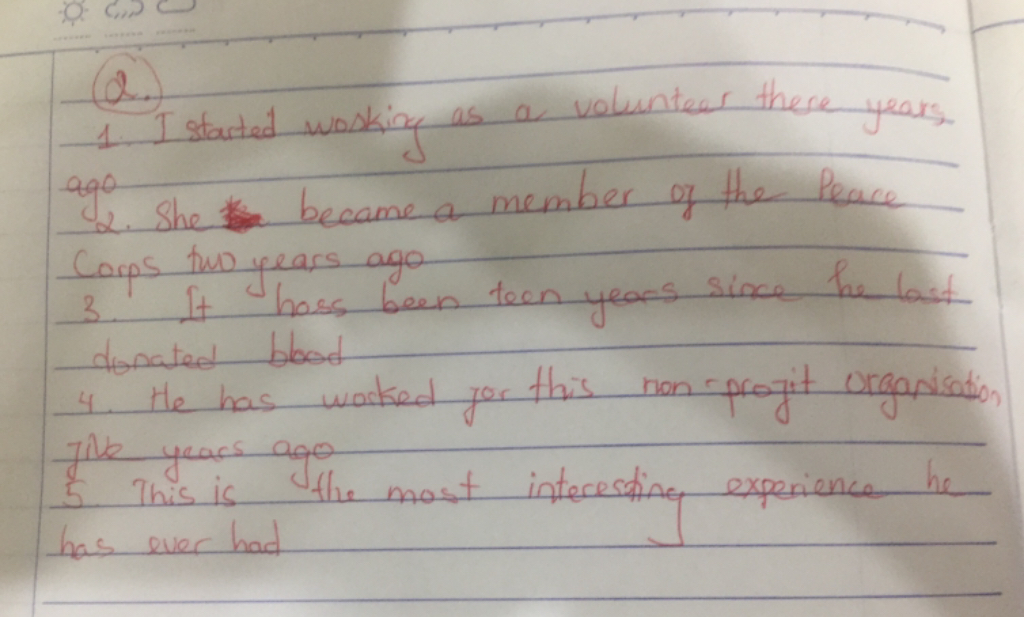 2.
1. I started working as a volunteer there years
ago
2. She became a member of the Peace
Corps two years ago
3. It hass been teen years since he last
donated blood
4. He has worked for this non-profit organisation
five years ago
5. This is the most interesting experience he
has ever had